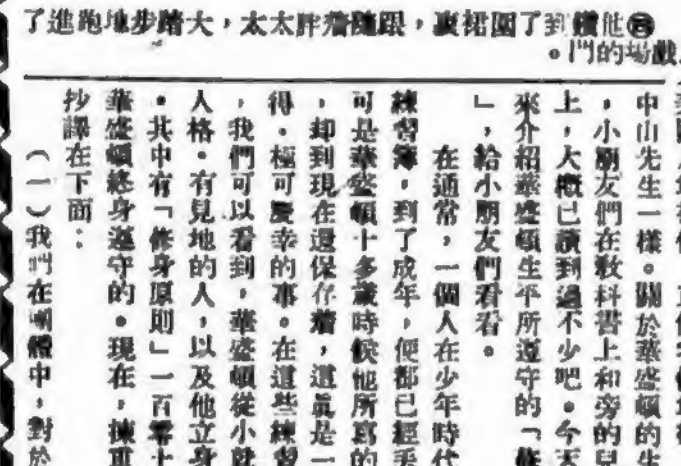 他鑽到了圍裙裏,跟隨着胖太太,大踏步地跑進了
戲場的門。
中山先生一樣。關於華盛頓的生
,小朋友們在敎科書上和旁的兒
上,大概已讀到過不少吧。今天
來介紹華盛頓生平所遵守的「修
」,給小朋友們看看。
在通常,一個人在少年時代
練習簿,到了成年,便都已經丟
可是華盛頓十多歲時候他所寫的
,却到現在還保存着,這眞是一
得.極可慶幸的事。在這些練習
,我們可以看到,華盛頓從小就
人格.有見地的人,以及他立身
.其中有「修身原則」一百零十
華盛頓終身遵守的。現在,揀重
抄譯在下面:
(一)我們在團體中,對於